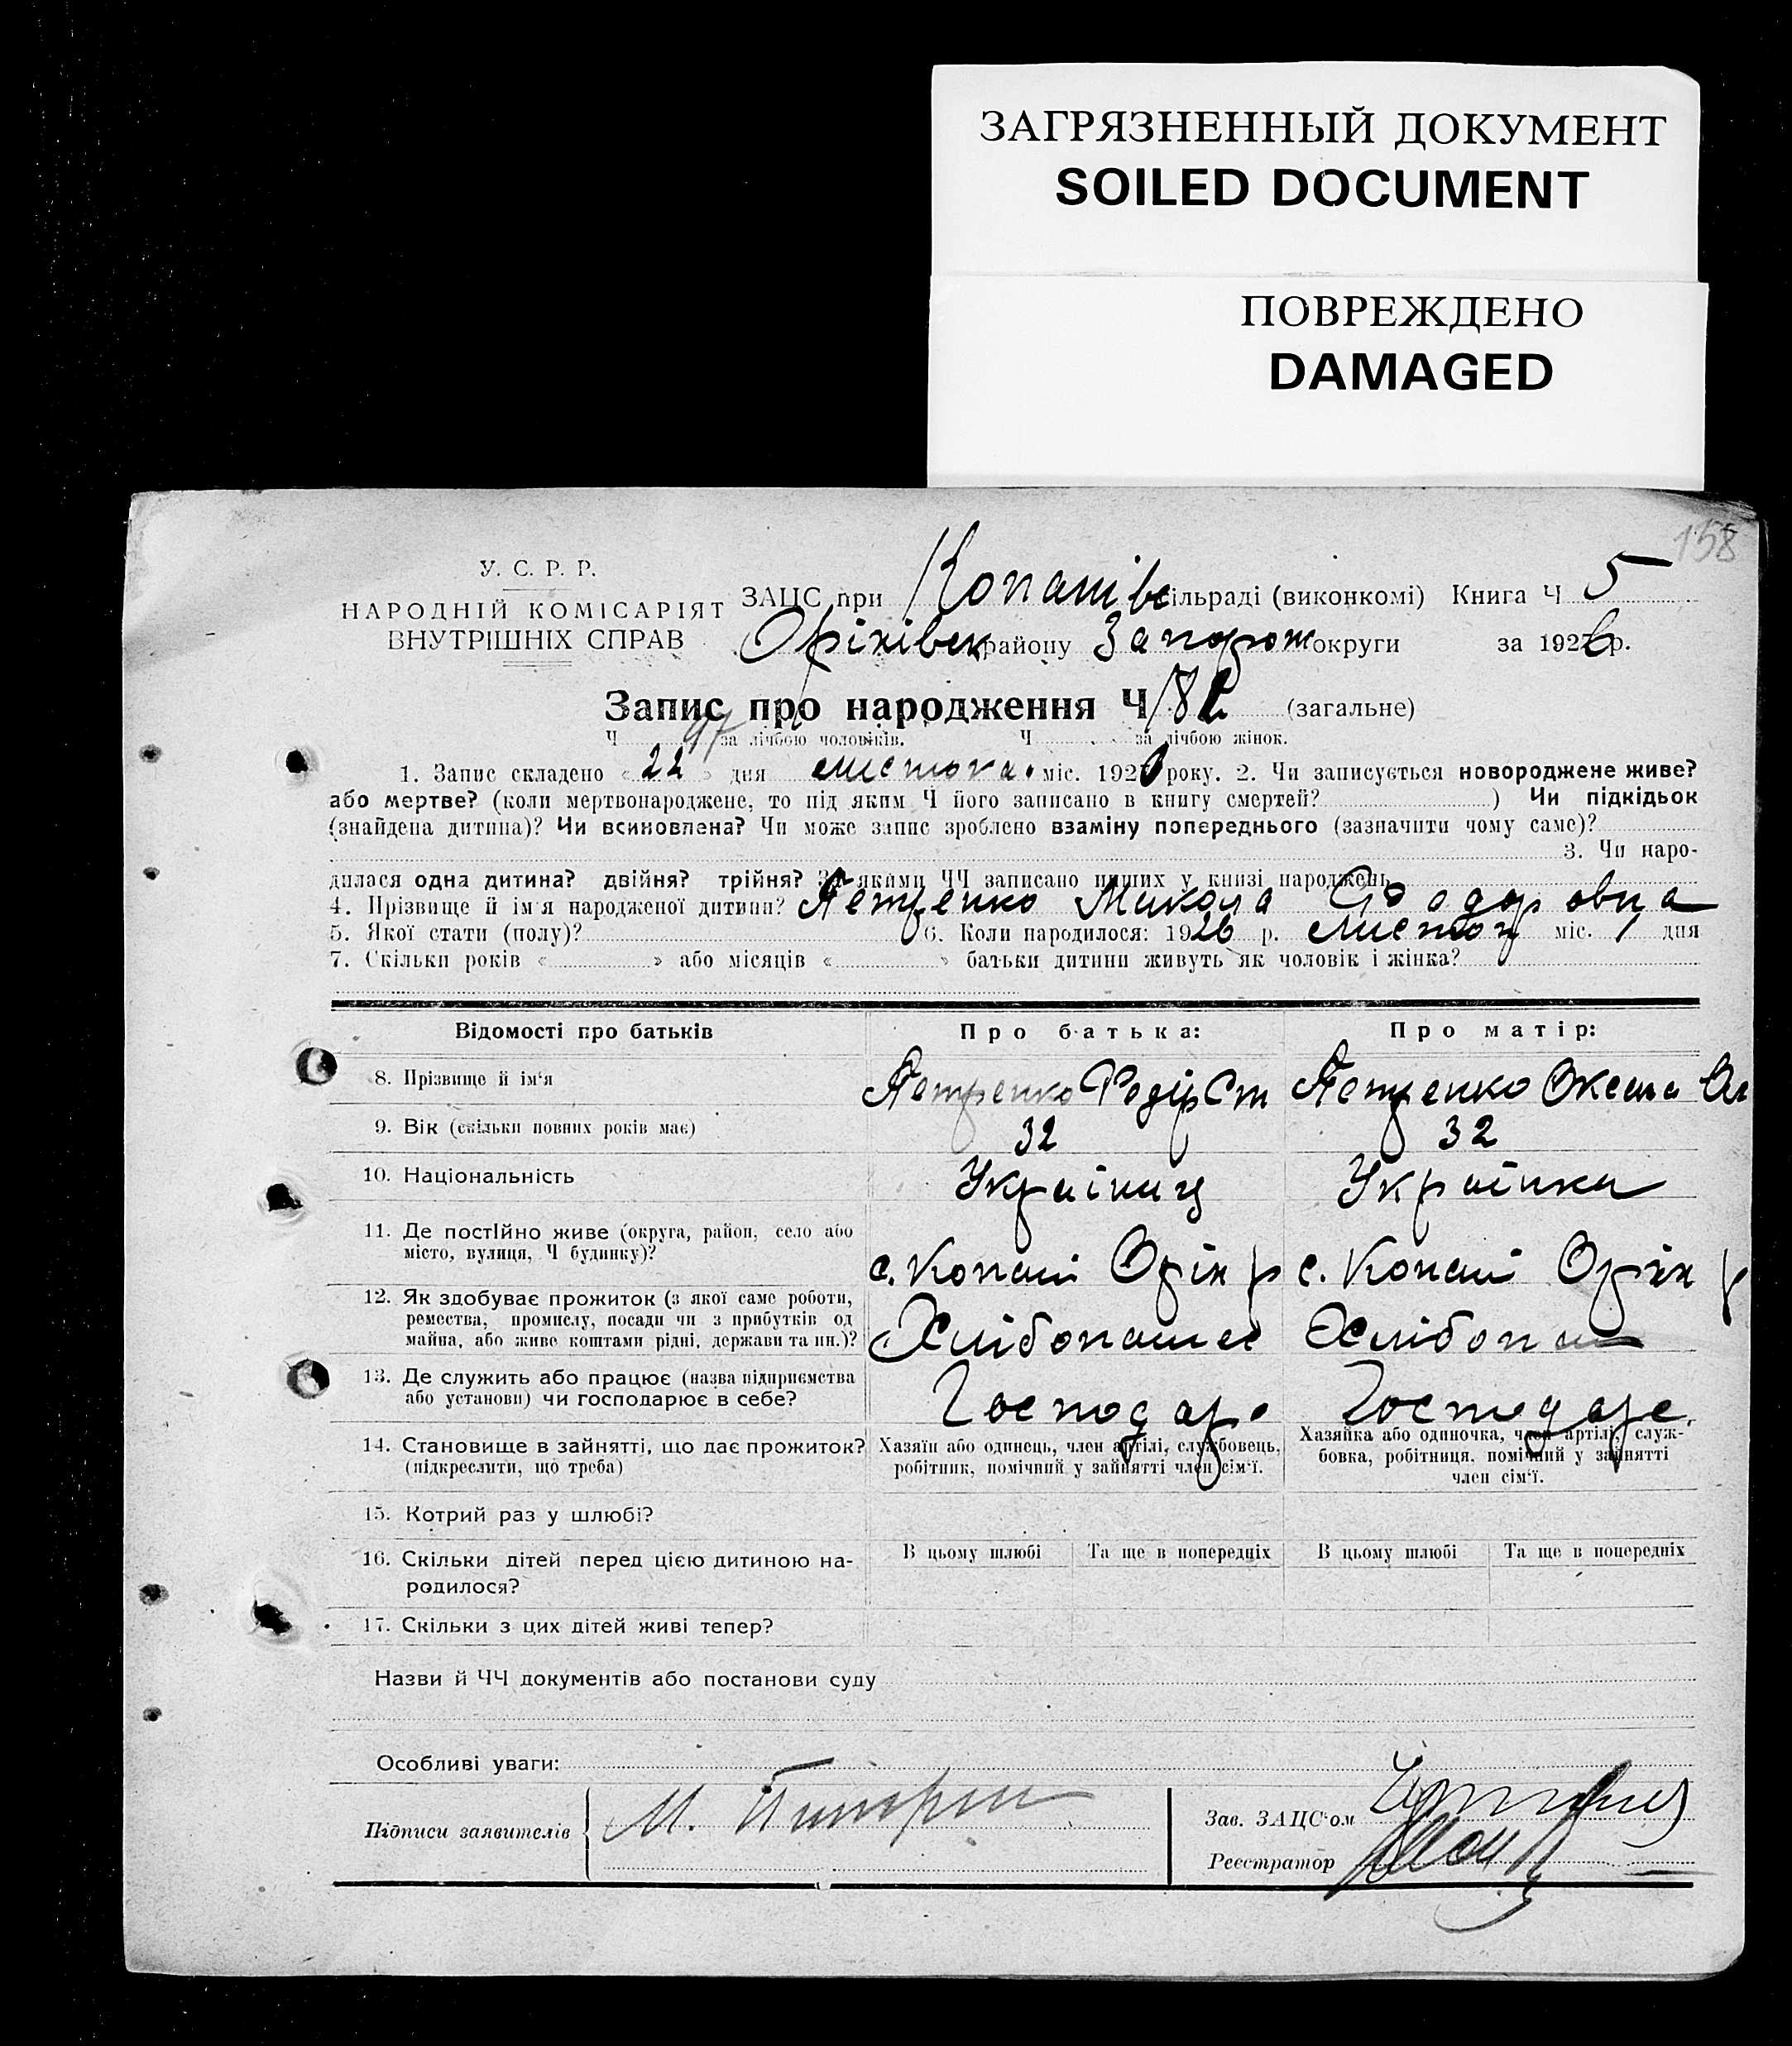 ЗАГРЯЗНЕННЫЙ ДОКУМЕНТ
SOILED DOCUMENT
ПОВРЕЖДЕНО
DAMAGED
158
У. С. Р. Р.
НАРОДНІЙ КОМІСАРІЯТ
ВНУТРІШНІХ СПРАВ
ЗАЦС при Копанівс сільраді (виконкомі) Книга Ч 5
Оріхівськ району Запорож округи за 1926 р.
Запис про народження Ч 182 (загальне)
Ч 97 за лічбою чоловіків. Ч за лічбою жінок.
1. Запис складено « 22 » дня листопа міс. 1926 року. 2. Чи записується новороджене живе?
або мертве? (коли мертвонароджене, то під яким Ч його записано в книгу смертей? ) Чи підкідьок
(знайдена дитина)? Чи всиновлена? Чи може запис зроблено взаміну попереднього (зазначити чому саме)?
3. Чи наро-
дилася одна дитина? двійня? трійня? За якими ЧЧ записано инших у книзі народжень
4. Прізвище й ім'я народженої дитини? Петренко Микола Федоровна
5. Якої стати (полу)? 6. Коли народилося: 1926 р. листоп міс. 1 дня
7. Скільки років « » або місяців « » батьки дитини живуть як чоловік і жінка?
Відомості про батьків Про батька: Про матір:
8. Прізвище й ім'я Петренко Федір Ст Петренко Оксана
9. Вік (скільки повних років має) 32 32
10. Національність Українец Українка
11. Де постійно живе (округа, район, село або
місто, вулиця, Ч будинку)?
с. Копані Оріх р с. Копані Оріх р
12. Як здобуває прожиток (з якої саме роботи,
ремества, промислу, посади чи з прибутків од
майна, або живе коштами рідні, держави та ин.)?
Хлібопашес Хлібопаш
13. Де служить або працює (назва підприємства
або установи) чи господарює в себе?
Господар. Господаре.
14. Становище в зайнятті, що дає прожиток?
(підкреслити, що треба)
Хазяїн або одинець, член артілі, службовець,
робітник, помічний у зайнятті член сім'ї.
Хазяйка або одиночка, член артілі, служ-
бовка, робітниця, помічний у зайнятті
член сім'ї.
15. Котрий раз у шлюбі?
16. Скільки дітей перед цією дитиною на-
родилося?
В цьому шлюбі Та ще в попередніх В цьому шлюбі Та ще в попередніх
17. Скільки з цих дітей живі тепер?
Назви й ЧЧ документів або постанови суду
Особливі уваги:
Підписи заявителів М.
Зав. ЗАЦС-ом
Реєстратор